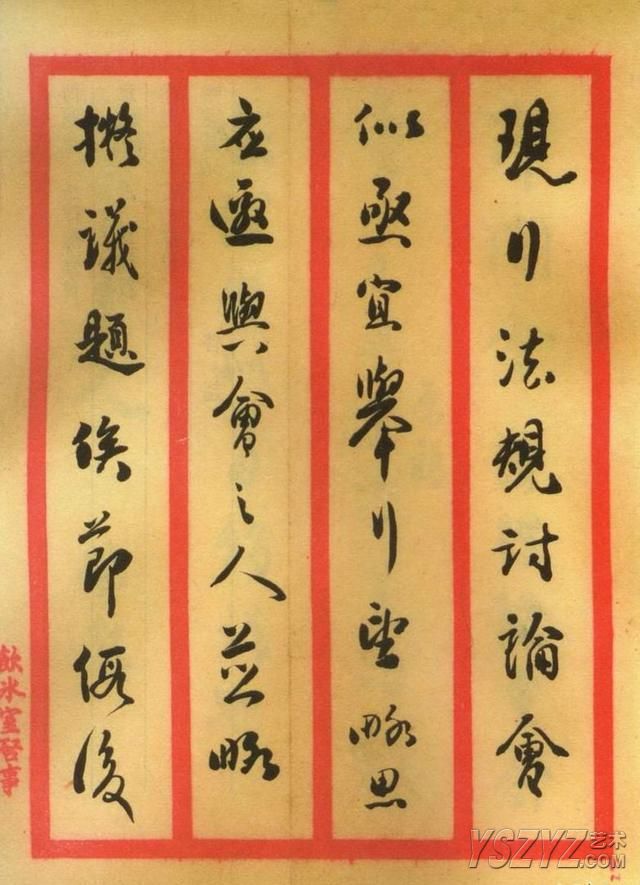 現行法規討論會
似亟宜舉行望略思
应邀與會之人並略
擬議題俟節假後
飲冰室啓事
YSZYZ艺术
.COM